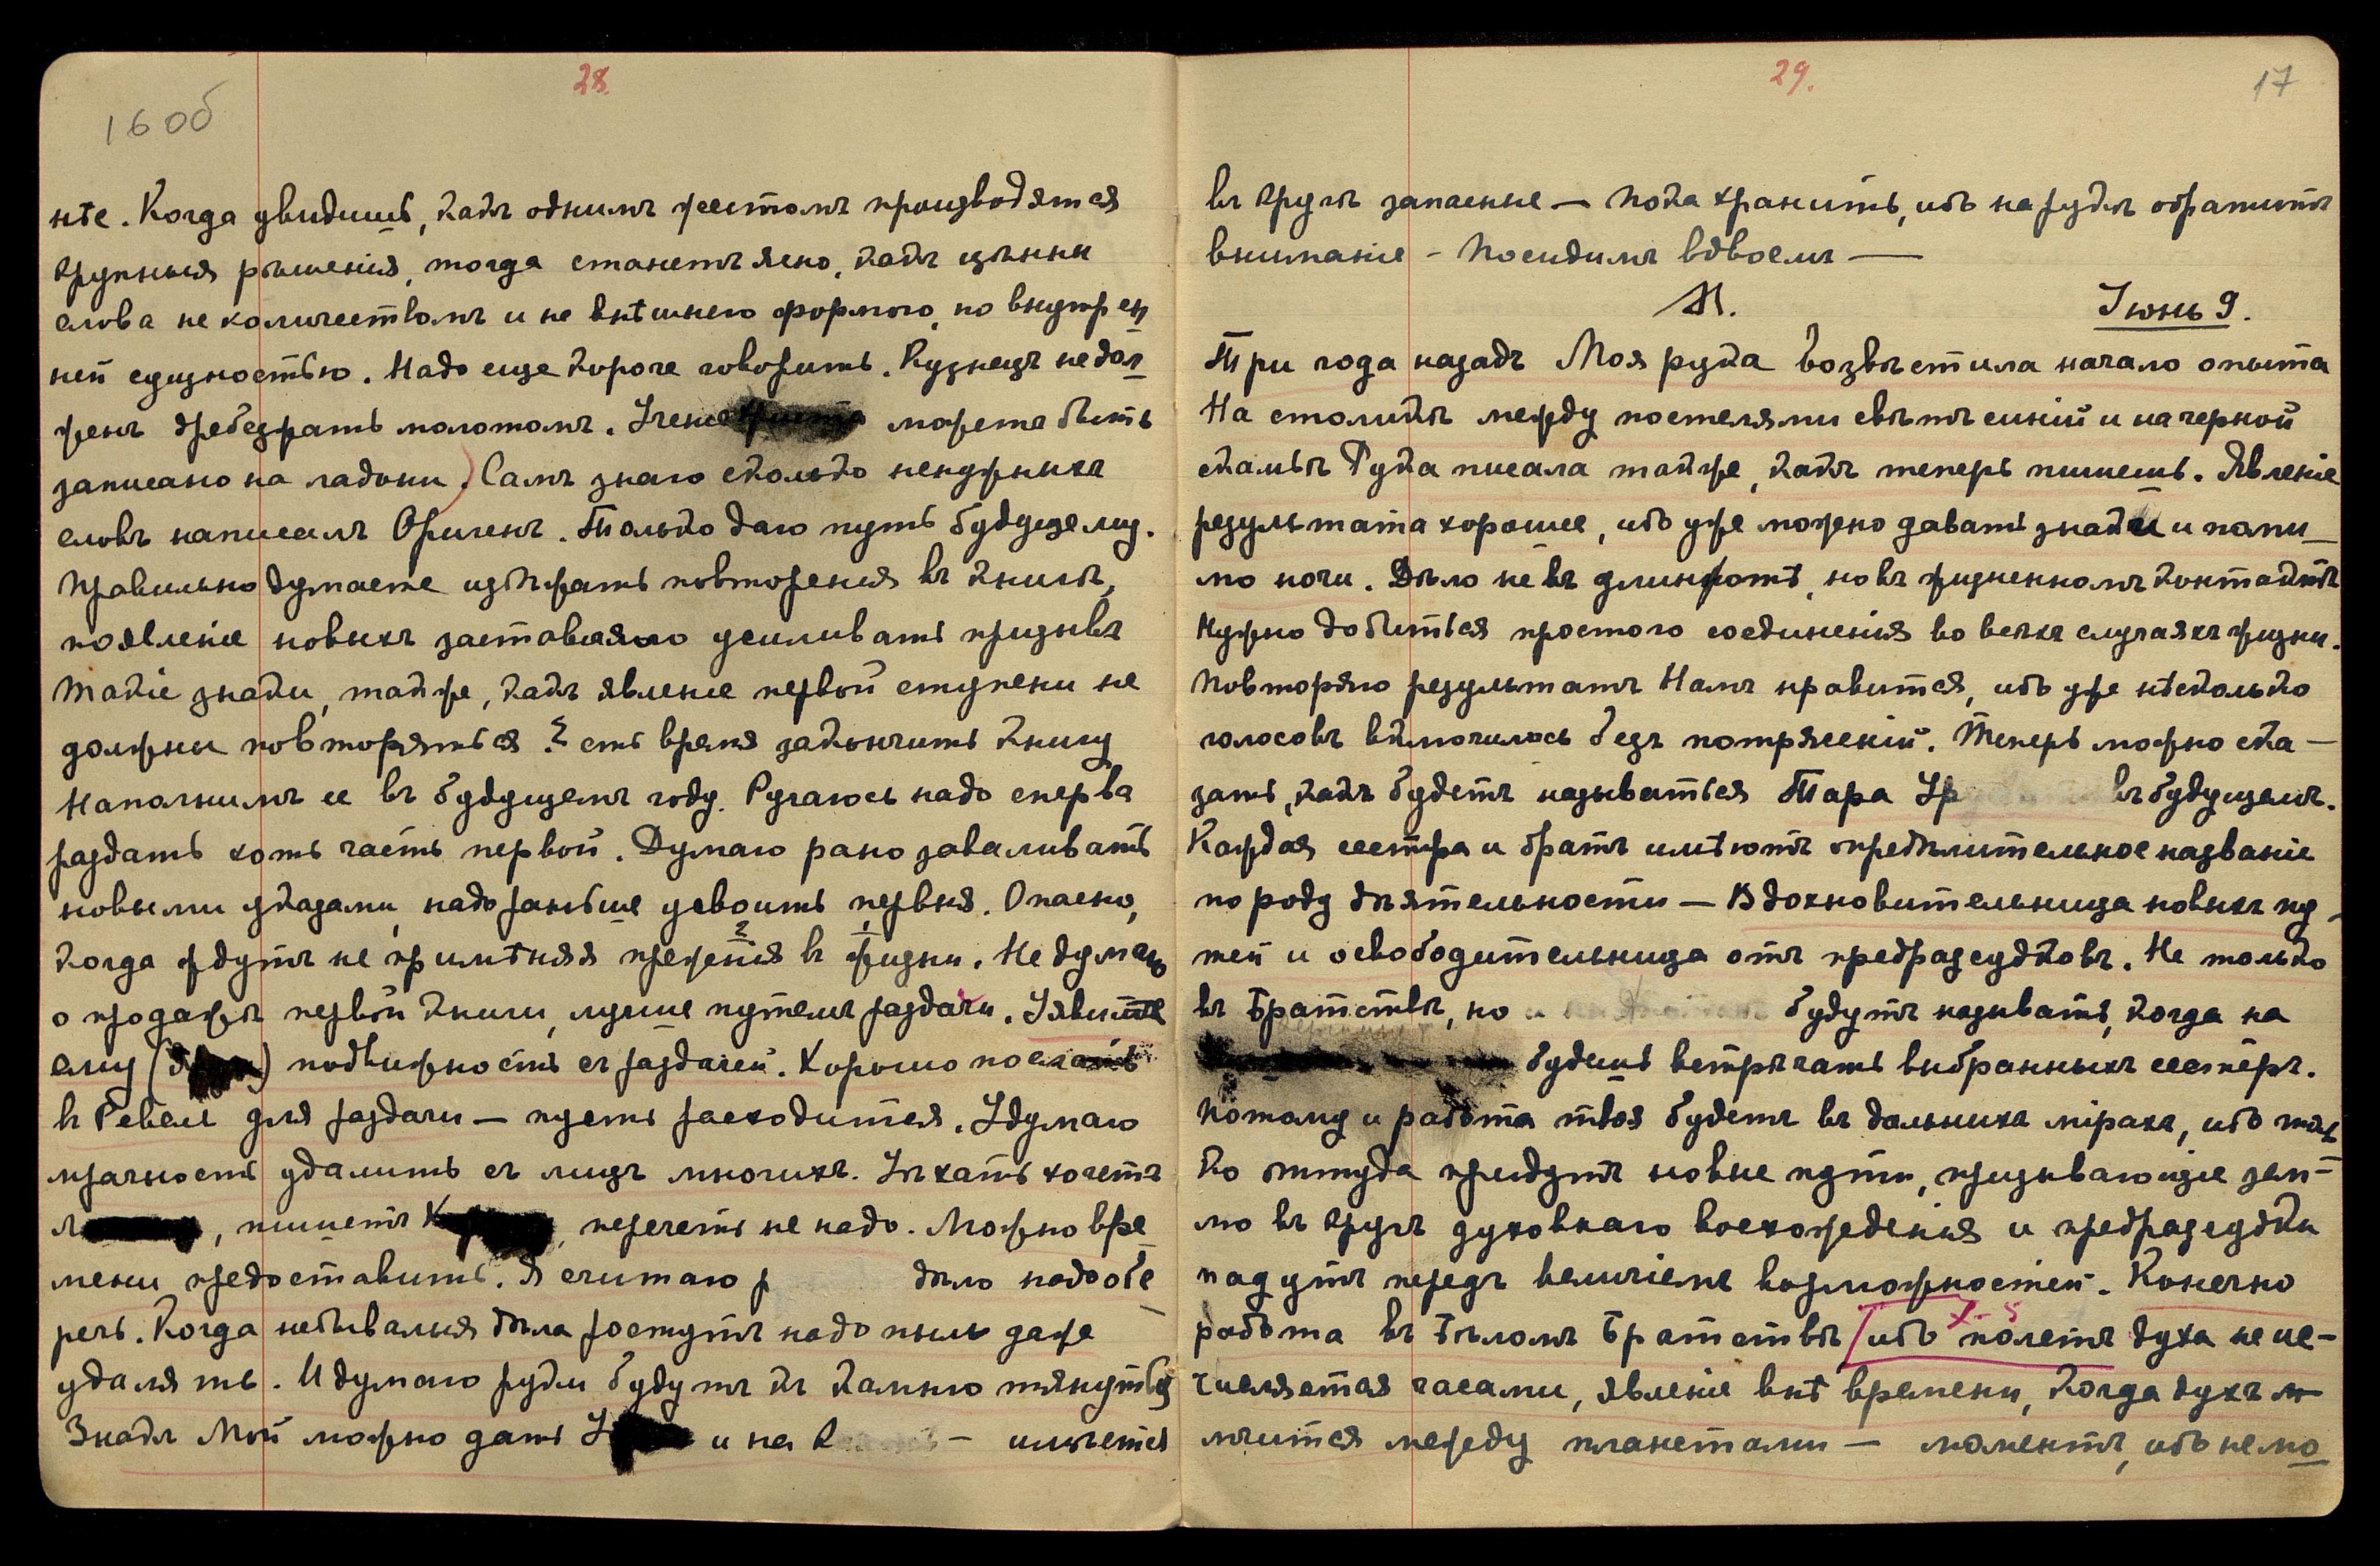 28.
16 об
нѣе. Когда увидишь, какъ однимъ жестомъ производятся
крупныя рѣшенія, тогда станетъ ясно, какъ цѣнны
слова не количествомъ и не внѣшнею формою, но внутрен
ней сущностью. Надо еще короче говорить. Кузнецъ не дол-
женъ дребезжать молотомъ. Ученіе можетъ быть
записано на ладони. Самъ знаю сколько ненужныхъ
словъ написалъ Оригенъ. Только даю путь будущему.
Правильно думаете избѣжать повторенія въ книгѣ,
появленіе новыхъ заставляло усиливать призывъ
Такіе знаки, также, какъ явленіе первой ступени не
должны повторяться. Есть время закончить книгу
Наполнимъ ее въ будущемъ году. Ручаюсь надо сперва
раздать хоть часть первой. Думаю рано заваливать
новыми указами, надо раньше усвоить первыя. Опасно,
когда ждутъ не примѣняя прежнія въ жизни. Не думаю
о продажѣ первой книги, лучше путемъ раздачи. Уявите
ему ( ) подвижность съ раздачей. Хорошо послать
въ Ревель для раздачи — пусть расходится. Удумаю
мрачность удалить съ лицъ многихъ. Уѣхать хочетъ
, пишетъ , перечить не надо. Можно вре
мени предоставить. Я считаю дѣло надо обе
речь. Когда небывалыя дѣла ростутъ надо пыль даже
удалять. И думаю руки будутъ къ камню тянуться
Знакъ Мой можно дать и на — имѣется
29.
17
въ кругѣ запасные — пока хранить, ибо на рукѣ обратитъ
вниманіе - посидимъ вдвоемъ —
М. Іюнь 9.
Три года назадъ Моя рука возвѣстила начало опыта
На столикѣ между постелями свѣтъ синій и на черной
скамьѣ Рука писала также, какъ теперь пишешь. Явленіе
результата хорошее, ибо уже можно давать знаки и поми-
мо ночи. Дѣло не въ длиннотѣ, но въ жизненномъ контактѣ
Нужно добиться простого соединенія во всѣхъ случаяхъ жизни.
Повторяю результатъ Намъ нравится, ибо уже нѣсколько
голосовъ включилось безъ потрясеній. Теперь можно ска-
зать, какъ будетъ называться Тара Ур въ будущемъ.
Каждая сестра и братъ имѣютъ опредѣлительное названіе
по роду дѣятельности — Вдохновительница новыхъ пу-
тей и освободительница отъ предразсудковъ. Не только
въ Братствѣ, но будутъ называть, когда на
будешь встрѣчать выбранныхъ сестеръ.
Потому и работа твоя будетъ въ дальнихъ мірахъ, ибо толь
ко оттуда придутъ новые пути, призывающіе зем-
лю въ кругъ духовнаго восхожденія и предразсудки
падутъ передъ величіемъ возможностей. Конечно
работа въ Бѣломъ Братствѣ, ибо полетъ духа не ис-
числяется часами, явленіе внѣ времени, когда духъ
мчится между планетами — моментъ, ибо не мо